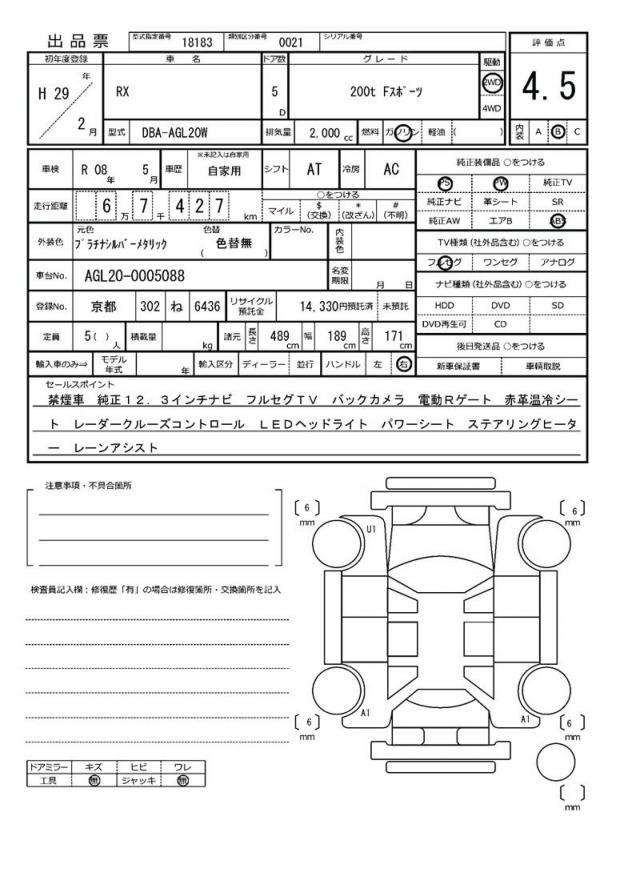 出品票 型式指定番号 18183 類別区分番号 0021 シリアル番号
初年度登録 車名 ドア数 グレード 駆動 評価点
H 29 年 2 月 RX 5 D 200t Fスポーツ 2WD 4WD 4.5
型式 DBA-AGL20W 排気量 2,000 cc 燃料 ガソリン 軽油 ( ) 内装 A B C
車検 R 08 年 5 月 車歴 ※未記入は自家用 自家用 シフト AT 冷房 AC 純正装備品 ○をつける
PS PW 純正TV
走行距離 6 万 7 千 4 2 7 km ○をつける マイル $ (交換) * (改ざん) # (不明)
純正ナビ 革シート SR
純正AW エアB ABS
外装色 元色 プラチナシルバーメタリック 色替 ( 色替無 ) カラーNo. 内装色
TV種類(社外品含む) ○をつける
フルセグ ワンセグ アナログ
車台No. AGL20-0005088 名変期限 月 日
ナビ種類(社外品含む) ○をつける
登録No. 京都 302 ね 6436 リサイクル預託金 14,330円預託済 未預託
HDD DVD SD
DVD再生可 CD
定員 5( ) 人 積載量 kg 諸元 長さ 489 cm 幅 189 cm 高さ 171 cm
後日発送品 ○をつける
輸入車のみ⇒ モデル年式 年 輸入区分 ディーラー 並行 ハンドル 左 右
新車保証書 車輌取説
セールスポイント
禁煙車 純正12.3インチナビ フルセグTV バックカメラ 電動Rゲート 赤革温冷シー
ト レーダークルーズコントロール LEDヘッドライト パワーシート ステアリングヒータ
ー レーンアシスト
注意事項・不具合箇所
検査員記入欄:修復歴「有」の場合は修復箇所・交換箇所を記入
[ 6 ] mm U1 [ 6 ] mm
[ 6 ] mm A1 A1 [ 6 ] mm
[ ] mm
ドアミラー キズ ヒビ ワレ
工具 無 ジャッキ 無